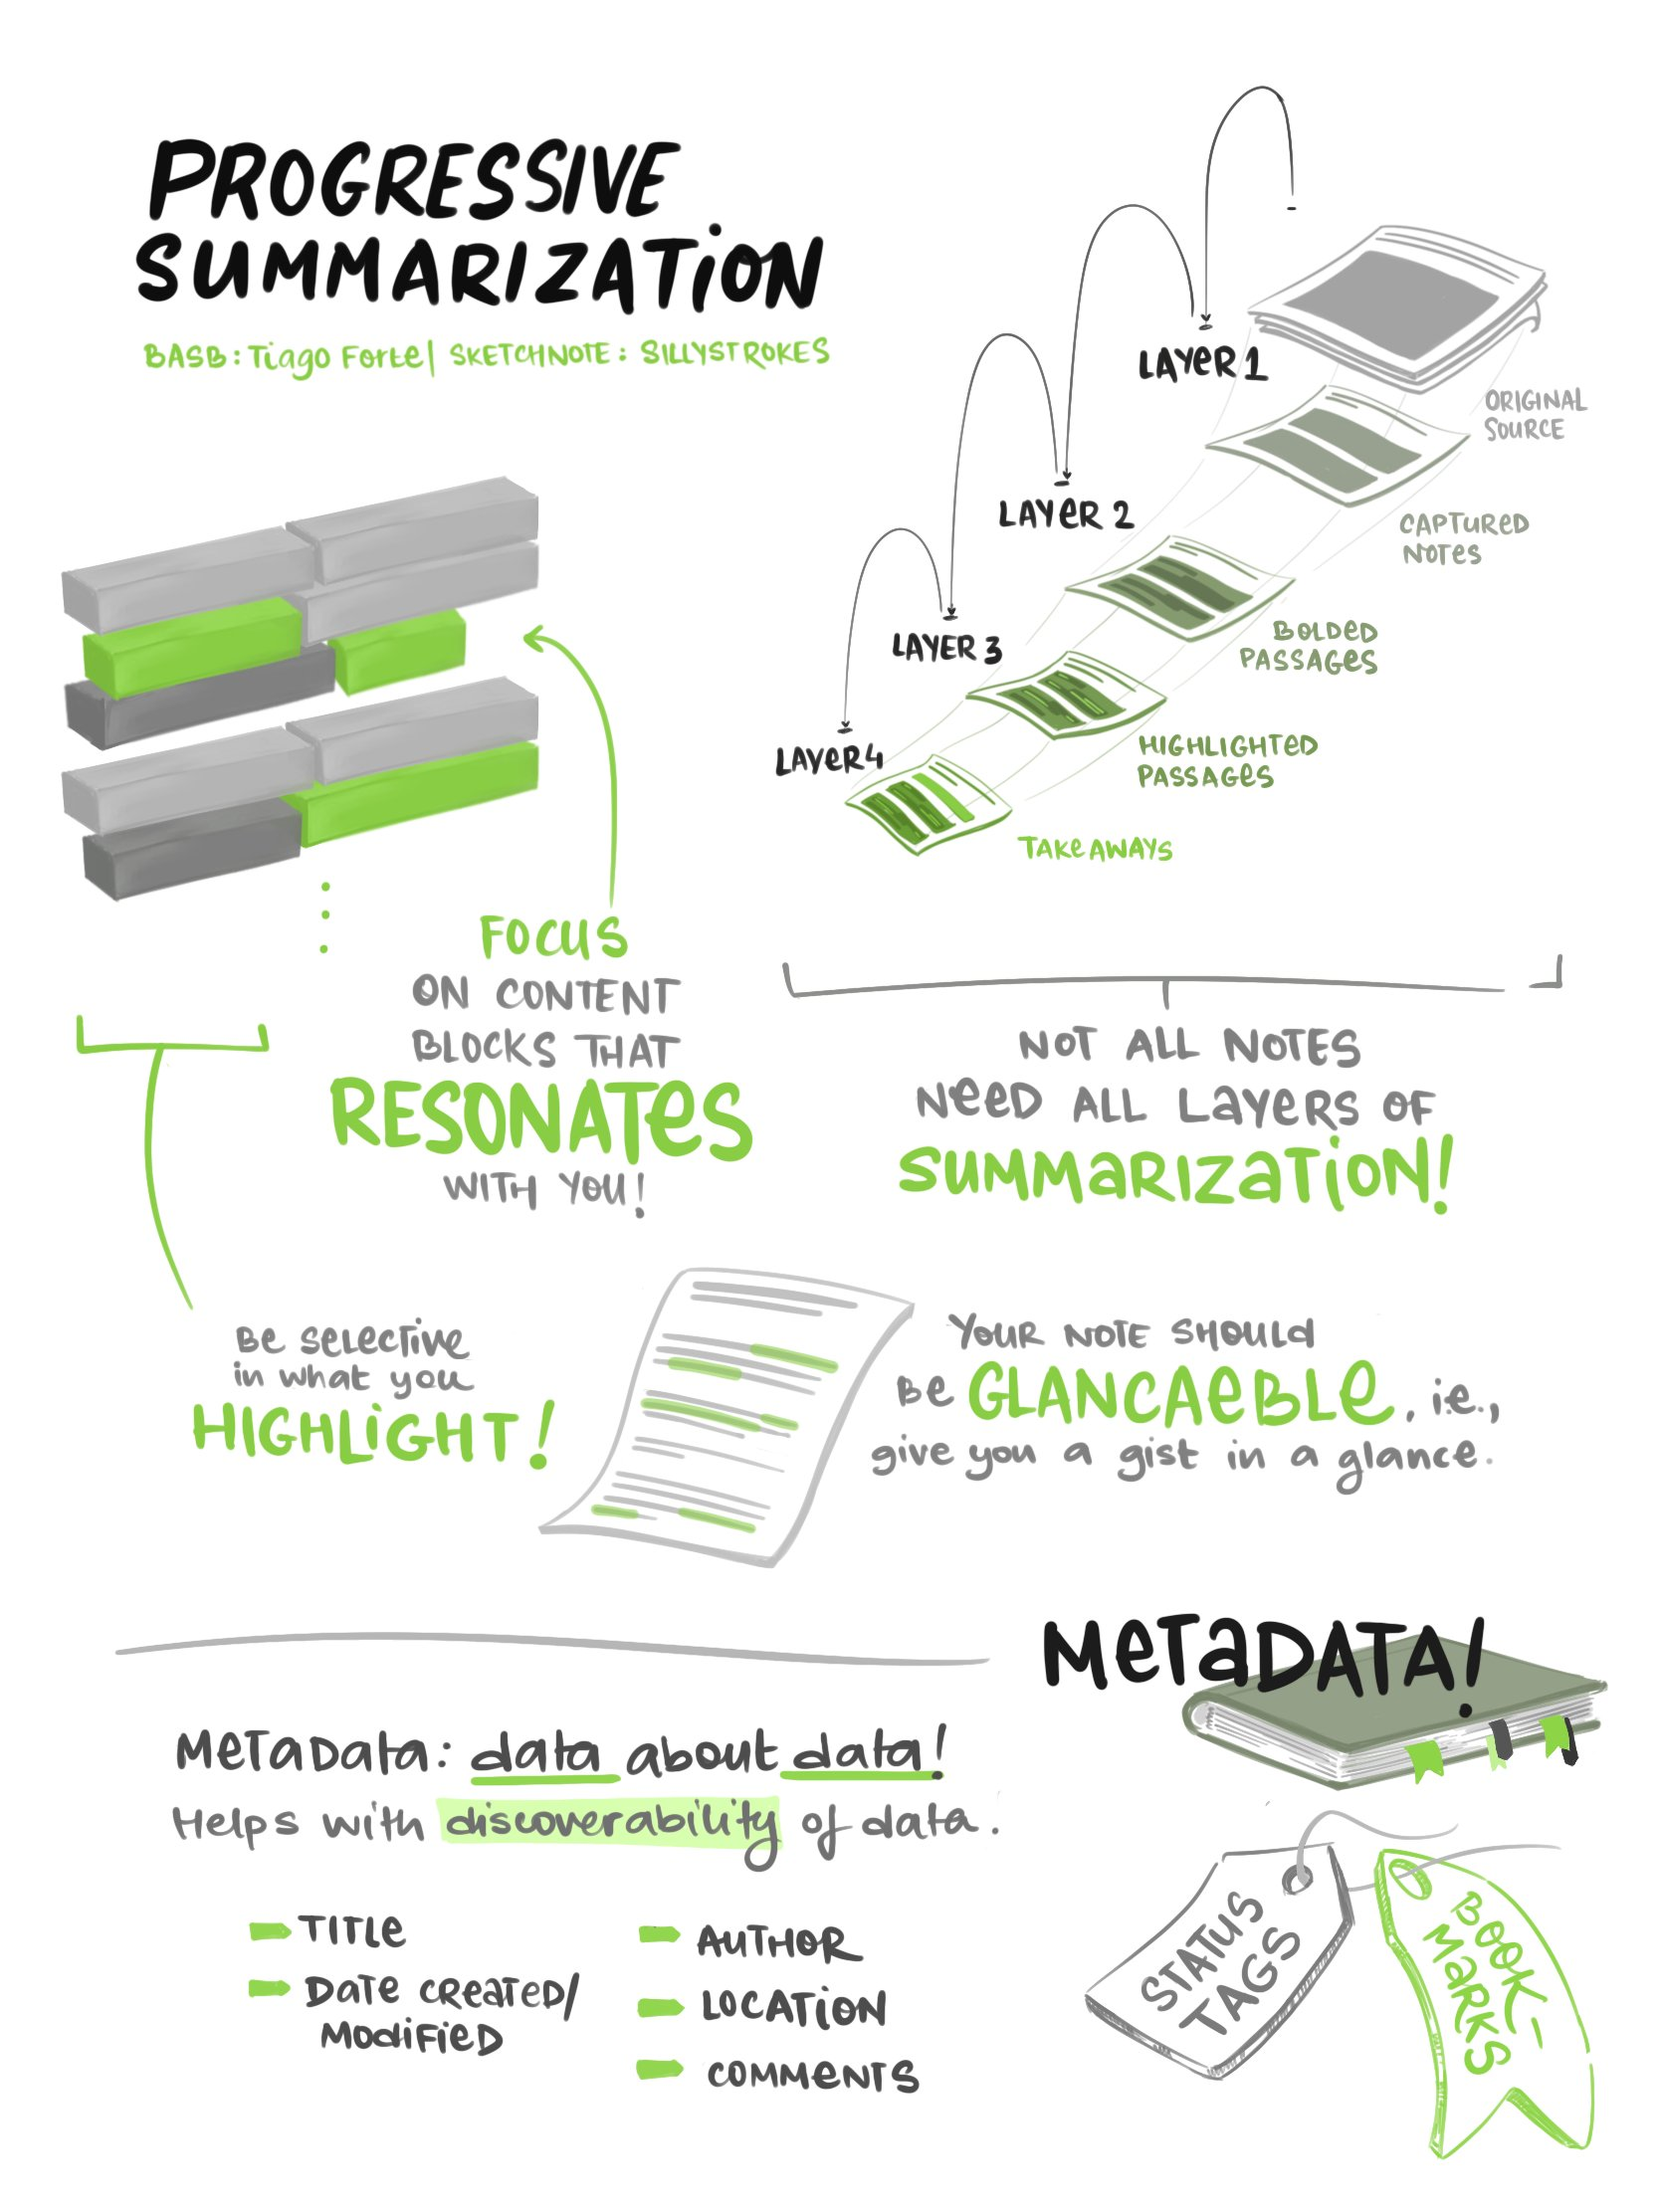 PROGRESSIVE
SUMMARIZATION
BASB: Tiago Forte| SKETCHNOTE: SILLYSTROKES
LAYER 1
ORIGINAL
SOURCE
LAYER 2
CAPTURED
NOTES
LAYER 3
BOLDED
PASSAGES
LAYER 4
HIGHLIGHTED
PASSAGES
TAKEAWAYS
FOCUS
ON CONTENT
BLOCKS THAT
RESONATES
WITH YOU!
NOT ALL NOTES
NEED ALL LAYERS OF
SUMMARIZATION!
BE SELECTIVE
in what you
HIGHLIGHT!
YOUR NOTE SHOULD
BE GLANCAEBLE, i.e.,
give you a gist in a glance.
METADATA!
METADATA: data about data!
Helps with discoverability of data.
TITLE
DATE CREATED/
MODIFIED
AUTHOR
LOCATION
COMMENTS
STATUS
TAGS
BOOK-
MARKS